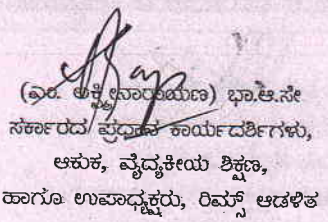 (ಎಂ. ಲಕ್ಷ್ಮೀನಾರಾಯಣ) ಭಾ.ಆ.ಸೇ
ಸರ್ಕಾರದ ಪ್ರಧಾನ ಕಾರ್ಯದರ್ಶಿಗಳು,
ಆಕುಕ, ವೈದ್ಯಕೀಯ ಶಿಕ್ಷಣ,
ಹಾಗೂ ಉಪಾಧ್ಯಕ್ಷರು, ರಿಮ್ಸ್ ಆಡಳಿತ